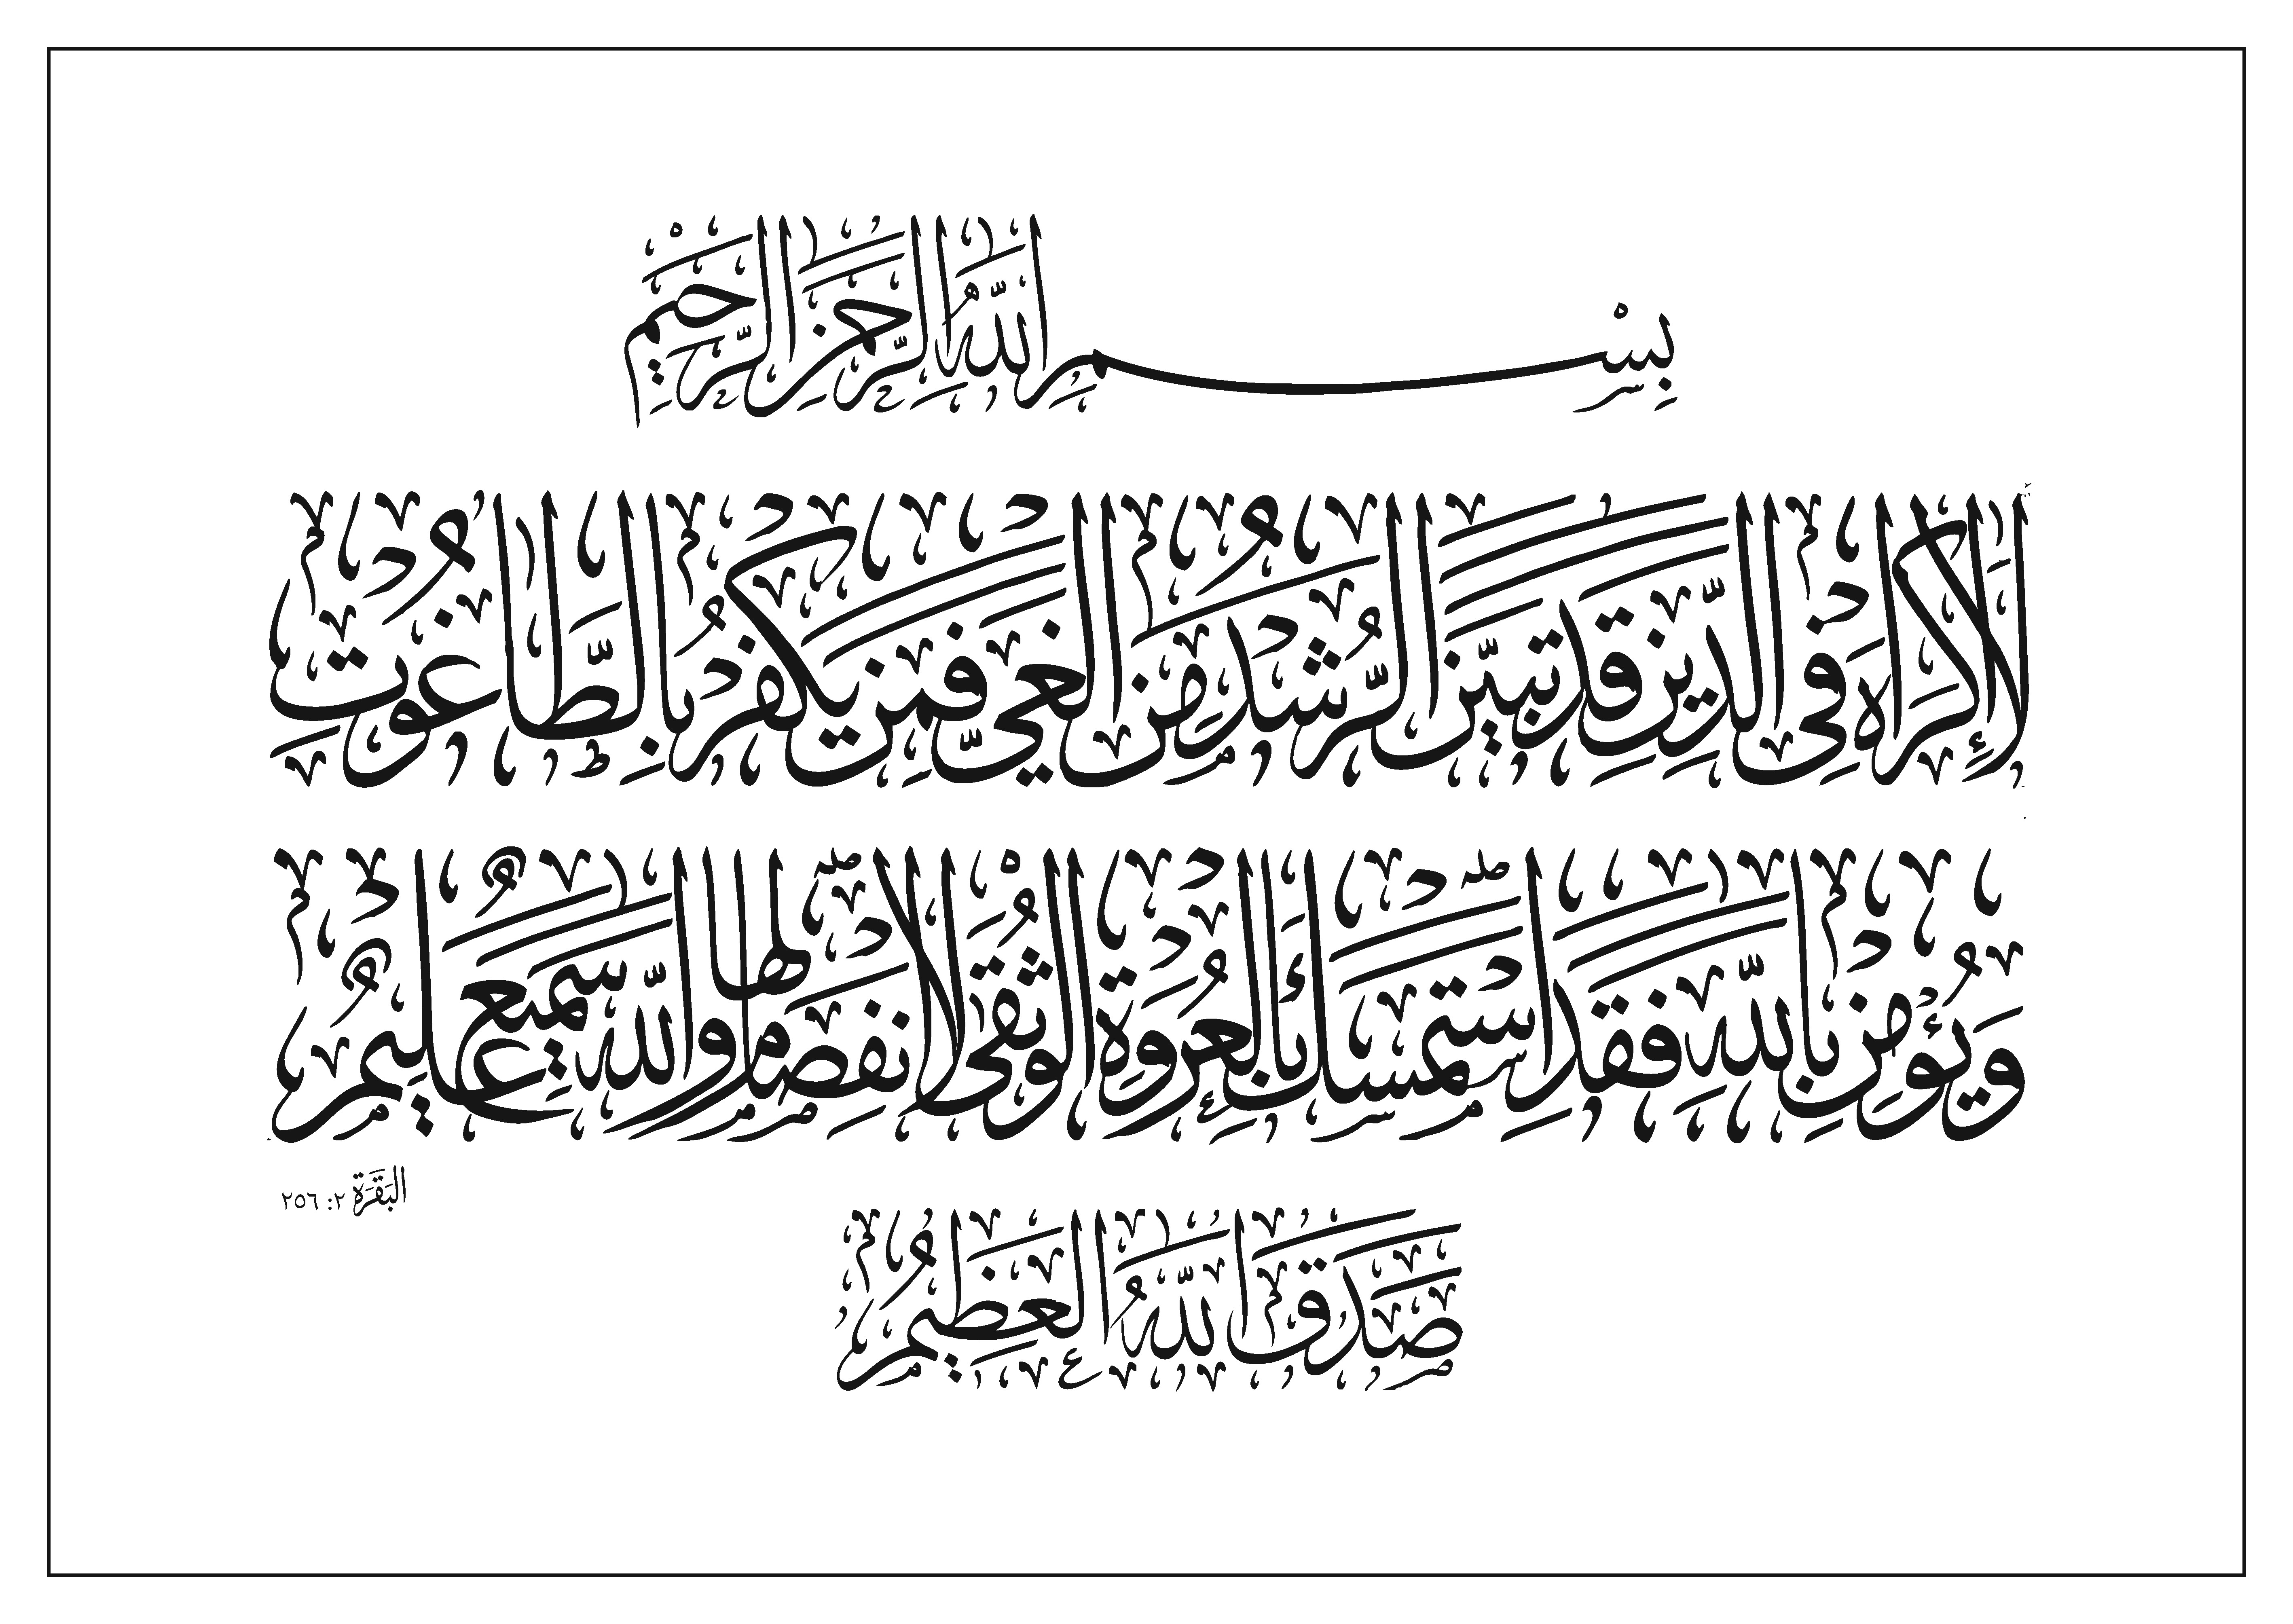 بِسْمِ اللَّهِ الرَّحْمَٰنِ الرَّحِيمِ
لَا إِكْرَاهَ فِي الدِّينِ قَد تَّبَيَّنَ الرُّشْدُ مِنَ الْغَيِّ فَمَن يَكْفُرْ بِالطَّاغُوتِ
وَيُؤْمِن بِاللَّهِ فَقَدِ اسْتَمْسَكَ بِالْعُرْوَةِ الْوُثْقَىٰ لَا انفِصَامَ لَهَا وَاللَّهُ سَمِيعٌ عَلِيمٌ
البَقَرَة ٢: ٢٥٦
صَدَقَ اللَّهُ الْعَظِيمُ